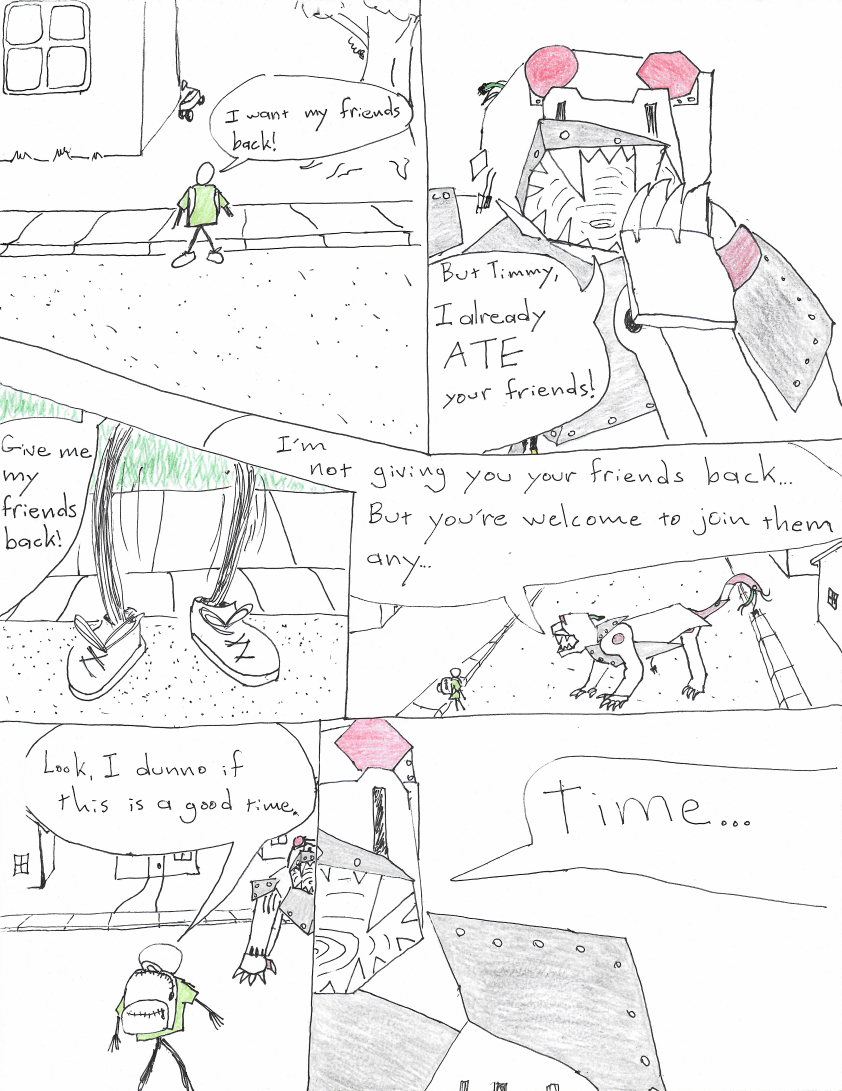 I want my friends
back!
But Timmy,
I already
ATE
your friends!
Give me
my
friends
back!
I'm
not giving you your friends back...
But you're welcome to join them
any...
Look, I dunno if
this is a good time.
Time...